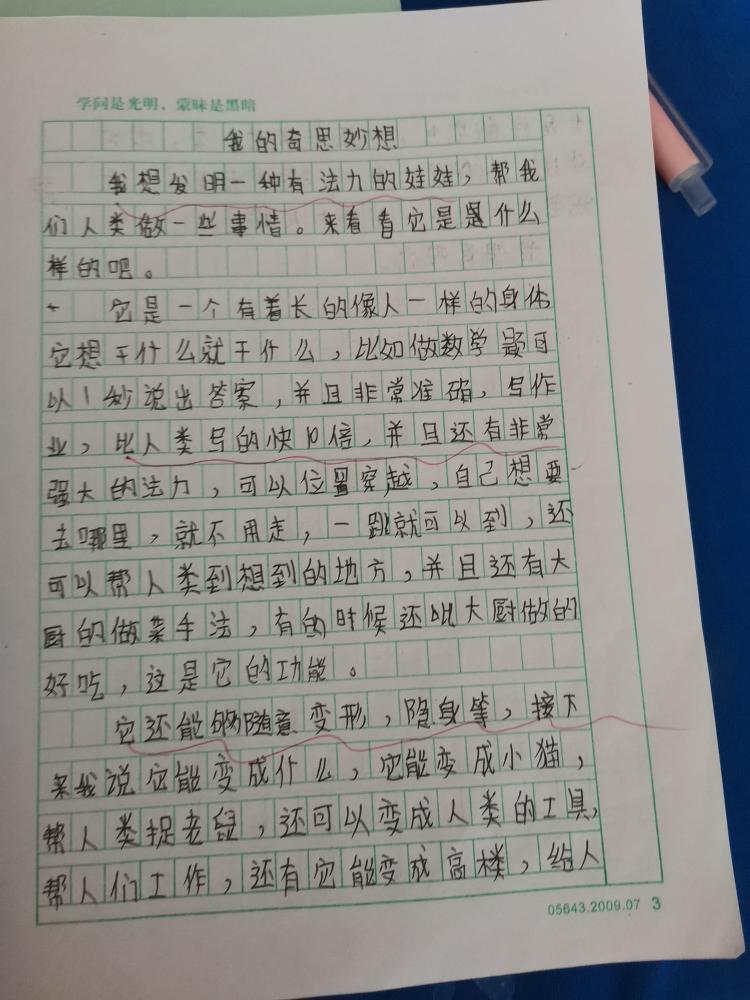 学问是光明，蒙昧是黑暗
我的奇思妙想
我想发明一种有法力的娃娃，帮我
们人类做一些事情。来看看它是是什么
样的吧。
它是一个有着长的像人一样的身体
它想干什么就干什么，比如做数学题可
以1秒说出答案，并且非常准确，写作
业，比人类写的快10倍，并且还有非常
强大的法力，可以位置穿越，自己想要
去哪里，就不用走，一跳就可以到，还
可以帮人类到想到的地方，并且还有大
厨的做菜手法，有的时候还比大厨做的
好吃，这是它的功能。
它还能够随意变形，隐身等，接下
来我说它能变成什么，它能变成小猫，
帮人类捉老鼠，还可以变成人类的工具，
帮人们工作，还有它能变成高楼，给人
05643.2009.07 3